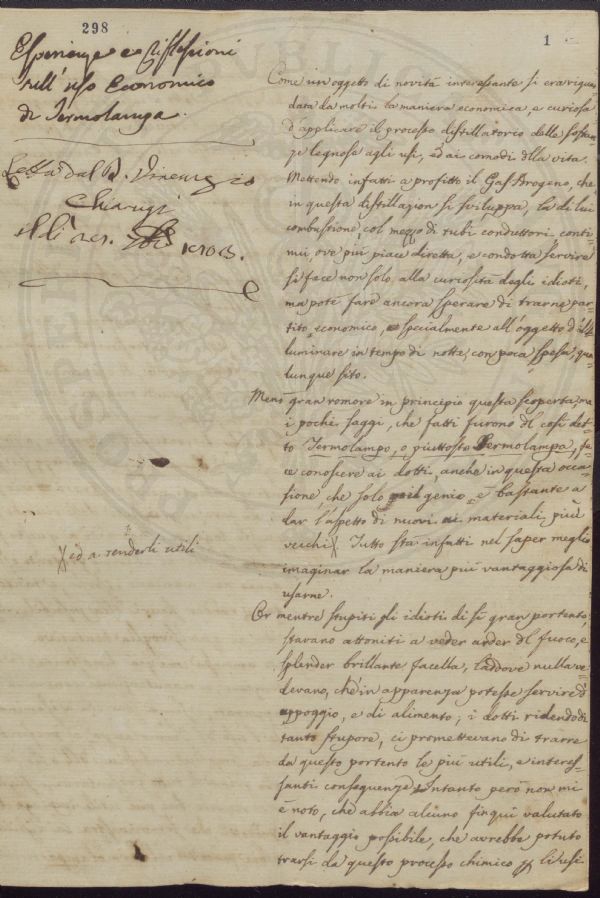 298
1
Esperienze e Riflessioni
sull' uso Economico
di Termolampa.
Letta dal D. Vincenzio
Chiarugi
1808.
Come un oggetto di novità interessante si era riguar
data da molti la maniera economica, e curiosa
d'applicare il processo distillatorio delle sostan
ze legnose agli usi, ed ai comodi della vita.
Mettendo infatti a profitto il Gas Idrogeno, che
in questa distillazion si sviluppa, la di lui
combustione, col mezzo di tubi conduttori conti
nui, ove più piace diretta, e condotta servire
si fece non solo alla curiosità degli idioti,
ma potè fare ancora sperare di trarne par
tito economico, specialmente all'oggetto d'il
luminare in tempo di notte, con poca spesa, qua
lunque sito.
Menò gran romore in principio questa scoperta; ma
i pochi saggi, che fatti furono del così det
to Termolampo, o piuttosto Termolampa, fe
ce conoscere ai dotti, anche in questa occa
sione, che solo il genio è bastante a
dar l'aspetto di nuovi ai materiali più
vecchi X. Tutto stà infatti nel saper meglio
imaginar la maniera più vantaggiosa di
usarne.
X ed a renderli utili
Or mentre stupiti gli idioti di sì gran portento,
stavano attoniti a veder arder del fuoco, e
splender brillante facella, laddove nulla ve
devano, che in apparenza potesse servire d'
appoggio, e di alimento; i dotti ridendo di
tanto stupore, ci promettevano di trarre
da questo portento le più utili, e interes
santi conseguenze. Intanto però non mi
è noto, che abbia alcuno finquì valutato
il vantaggio possibile, che avrebbe potuto
trarsi da questo processo chimico li usi